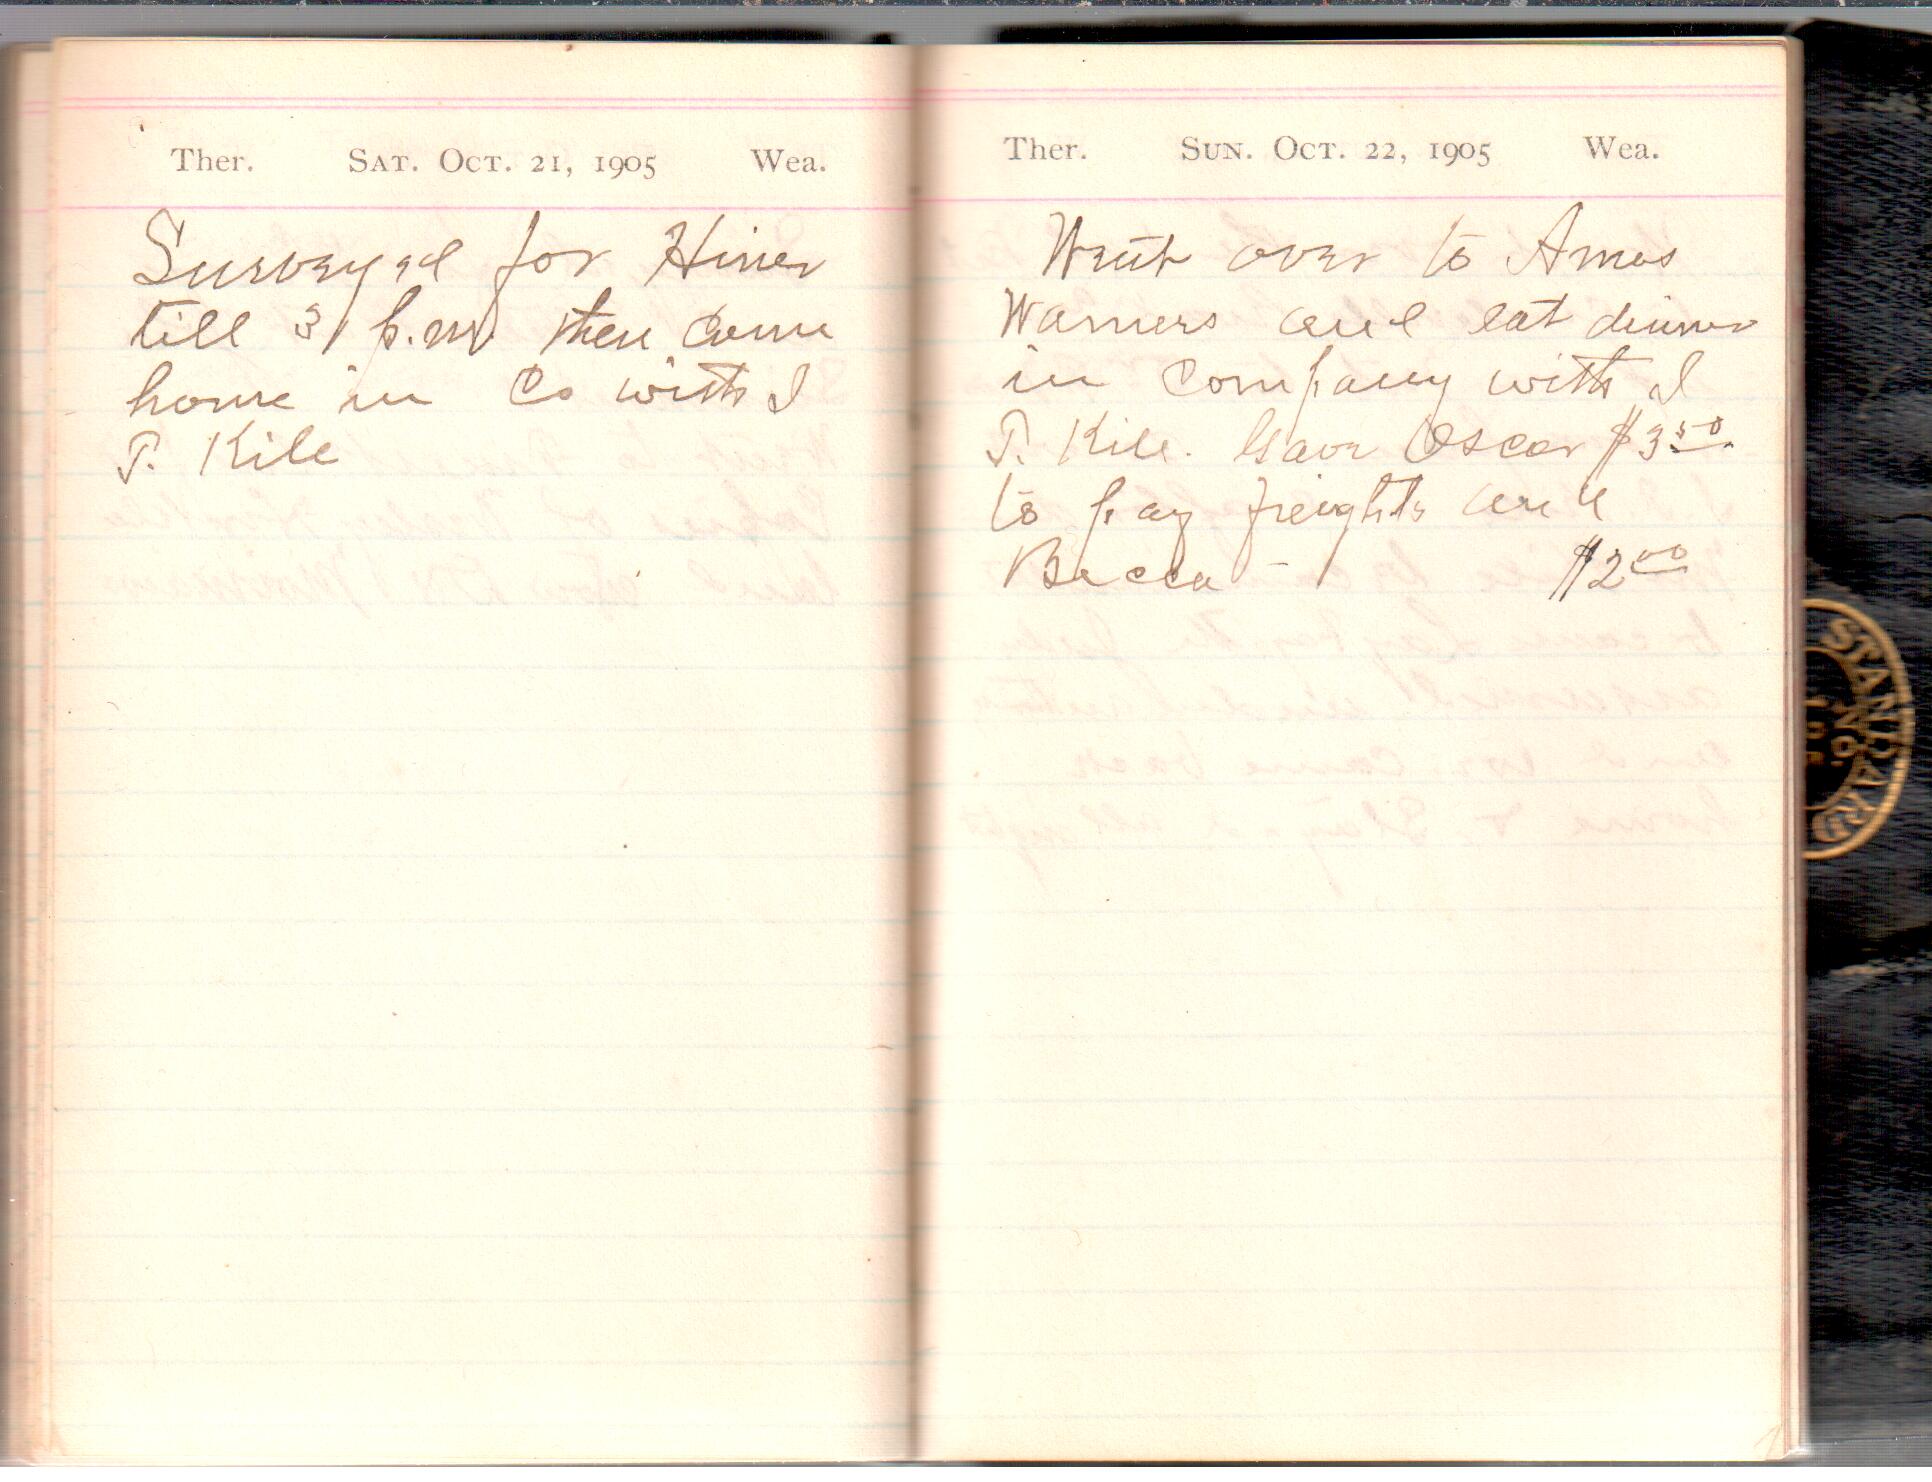 Ther. Sat. Oct. 21, 1905 Wea.
Surveyed for Hiner
till 3 p.m. then came
home in Co with I
T. Kile
Ther. Sun. Oct. 22, 1905 Wea.
Went over to Amos
Warners and eat dinner
in Company with I
T. Kile. Gave Oscar $3.50
to pay freights and
Becca - $2.00
STANDARD
NO.